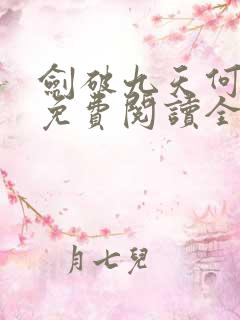 劍破九天何
免費閱讀全
月七兒